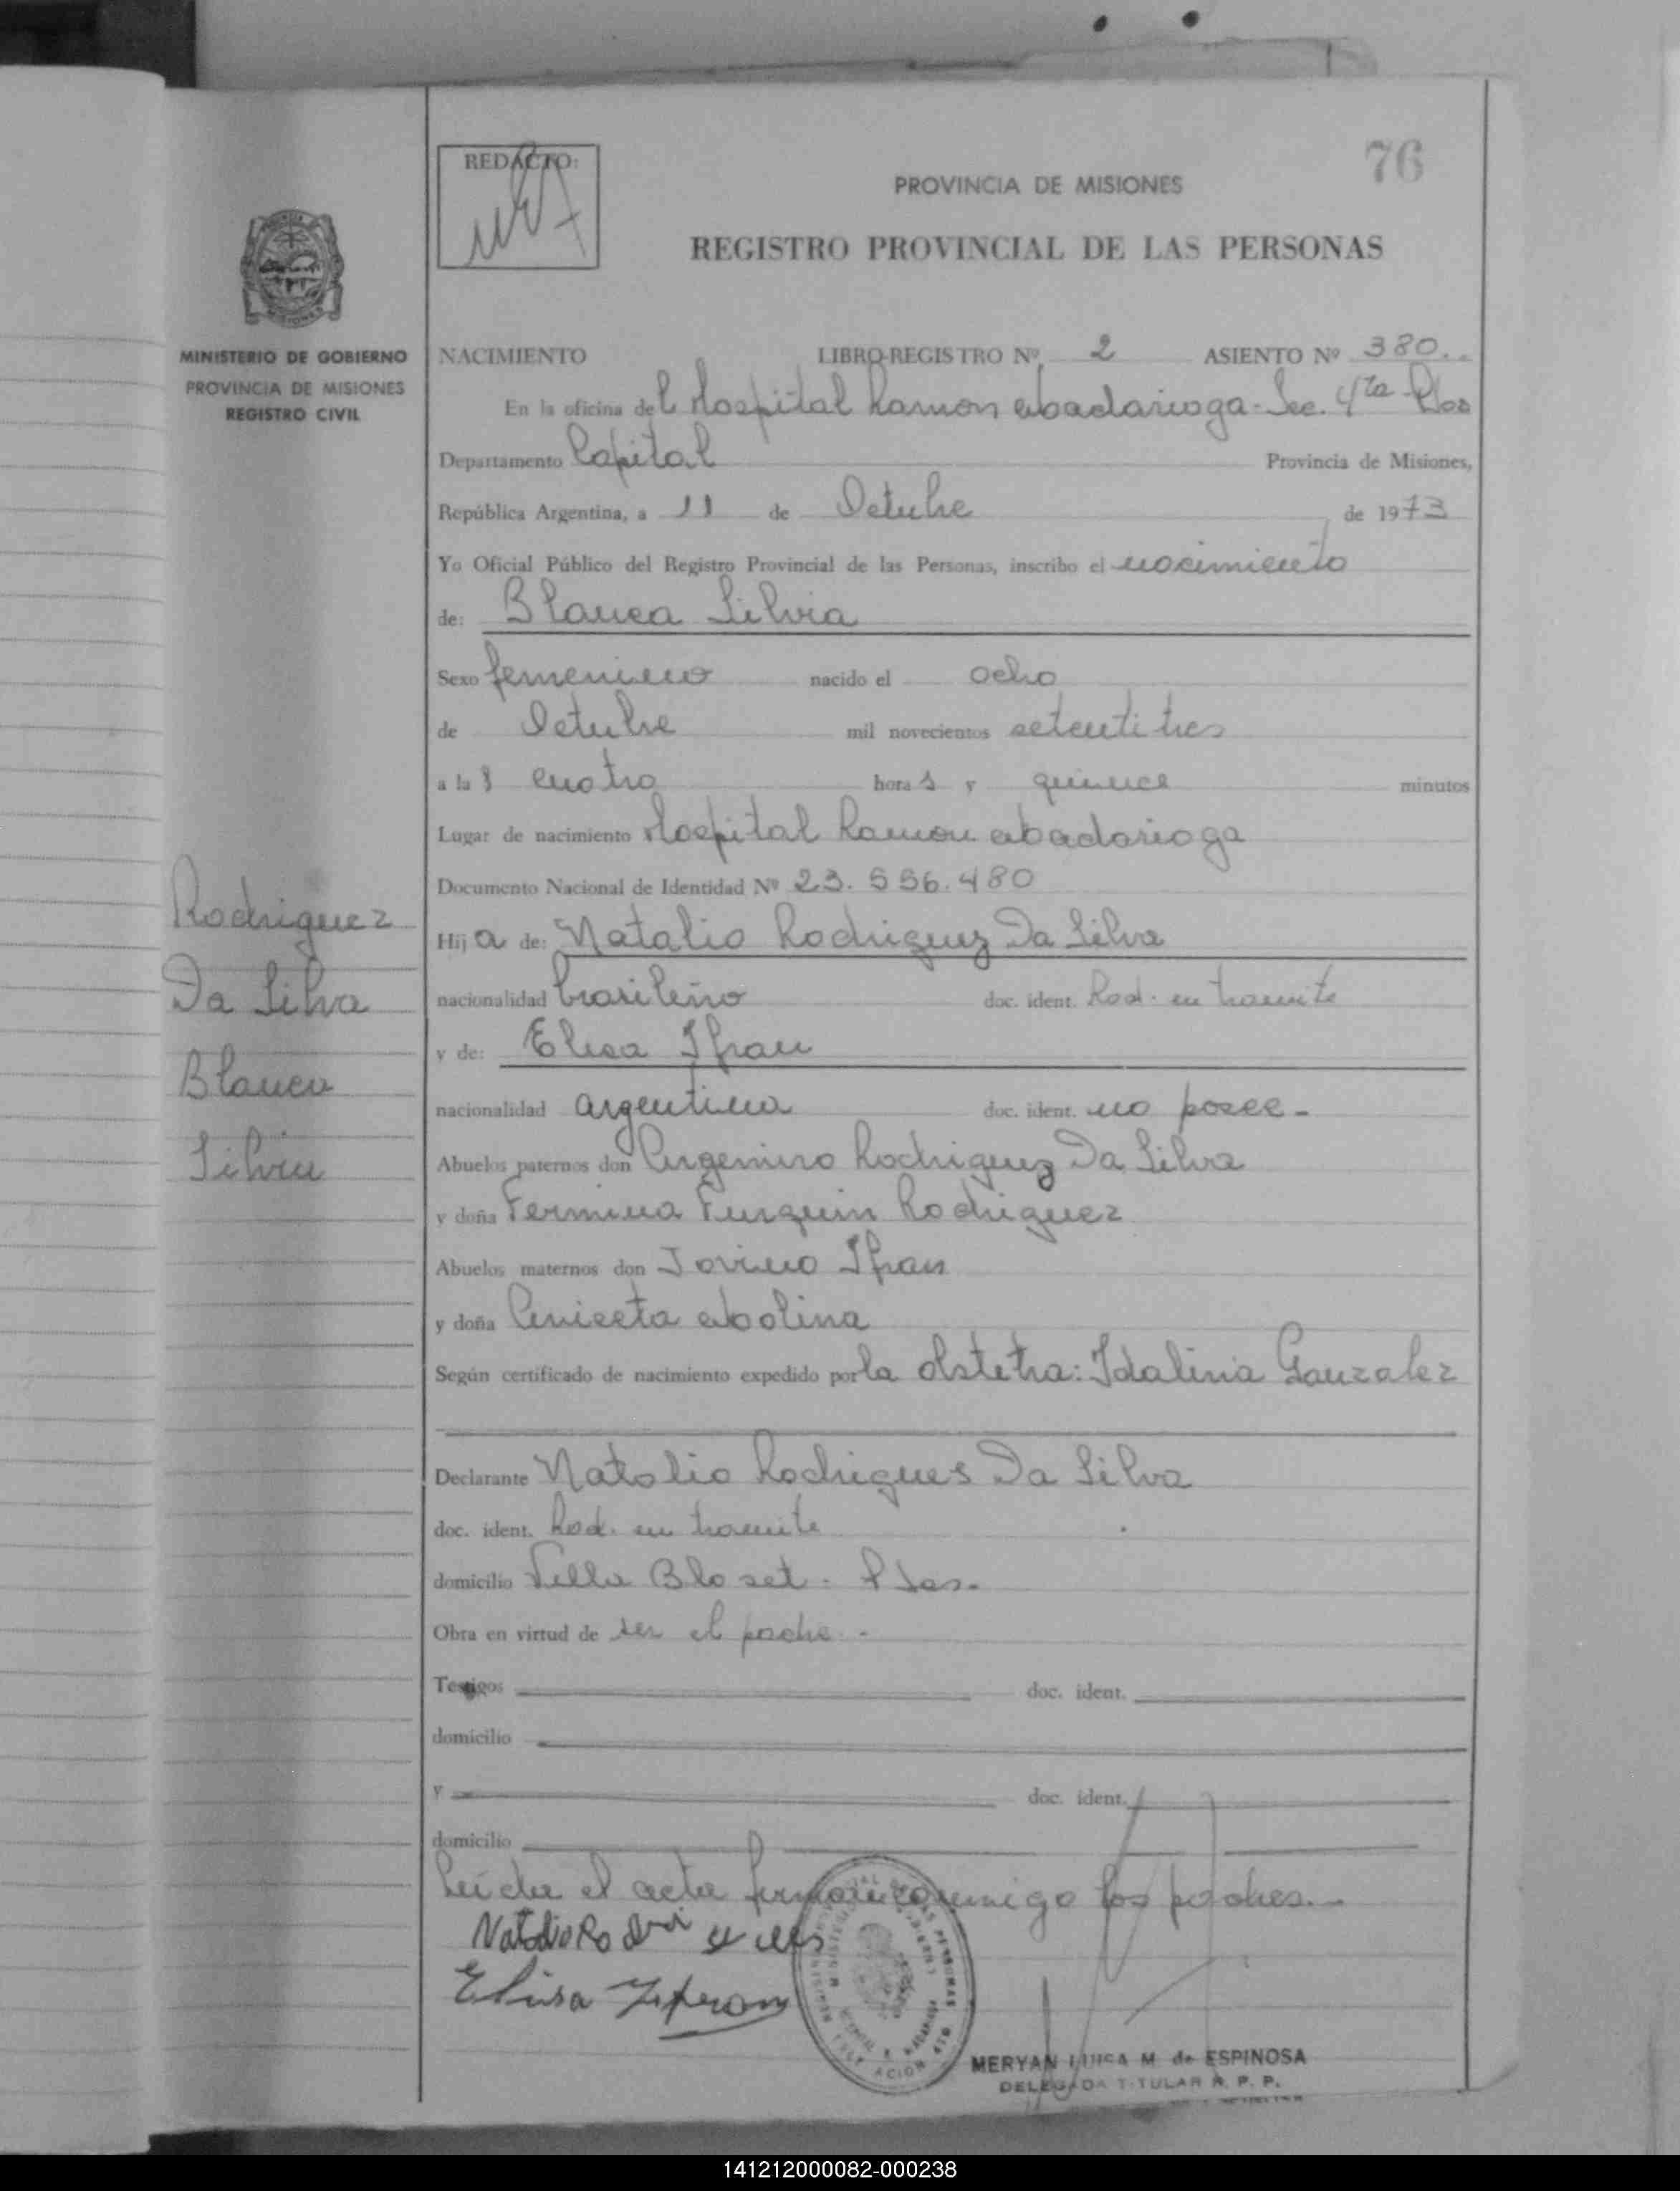 76
REDACTO:
PROVINCIA DE MISIONES
REGISTRO PROVINCIAL DE LAS PERSONAS
MINISTERIO DE GOBIERNO
PROVINCIA DE MISIONES
REGISTRO CIVIL
NACIMIENTO LIBRO-REGISTRO Nº 2 ASIENTO Nº 380
En la oficina del Hospital Ramon Madariaga - Sec. 4ta - Pdas
Departamento Capital Provincia de Misiones,
República Argentina, a 11 de Octubre de 1973
Yo Oficial Público del Registro Provincial de las Personas, inscribo el nacimiento
de: Blanca Silvia
Sexo femenino nacido el ocho
de Octubre mil novecientos setentitres
a las cuatro horas y quince minutos
Lugar de nacimiento Hospital Ramon Madariaga
Documento Nacional de Identidad Nº 23.556.480
Hija de: Natalio Rodriguez Da Silva
nacionalidad brasileño doc. ident. Rad. en tramite
y de: Elisa Ifran
nacionalidad argentina doc. ident. no posee -
Abuelos paternos don Argemiro Rodriguez Da Silva
y doña Fermina Furquin Rodriguez
Abuelos maternos don Jovino Ifran
y doña Aniceta Molina
Según certificado de nacimiento expedido por la obstetra: Idalina Gonzalez
Declarante Natalio Rodrigues Da Silva
doc. ident. Rad. en tramite
domicilio Villa Bloset - Pdas.
Obra en virtud de ser el padre -
Testigos doc. ident.
domicilio
y doc. ident.
domicilio
Leida el acta firman conmigo los padres.-
Rodriguez
Da Silva
Blanca
Silvia
Elisa
MERYAN LUISA M. de ESPINOSA
DELEGADA TITULAR R. P. P.
141212000082-000238